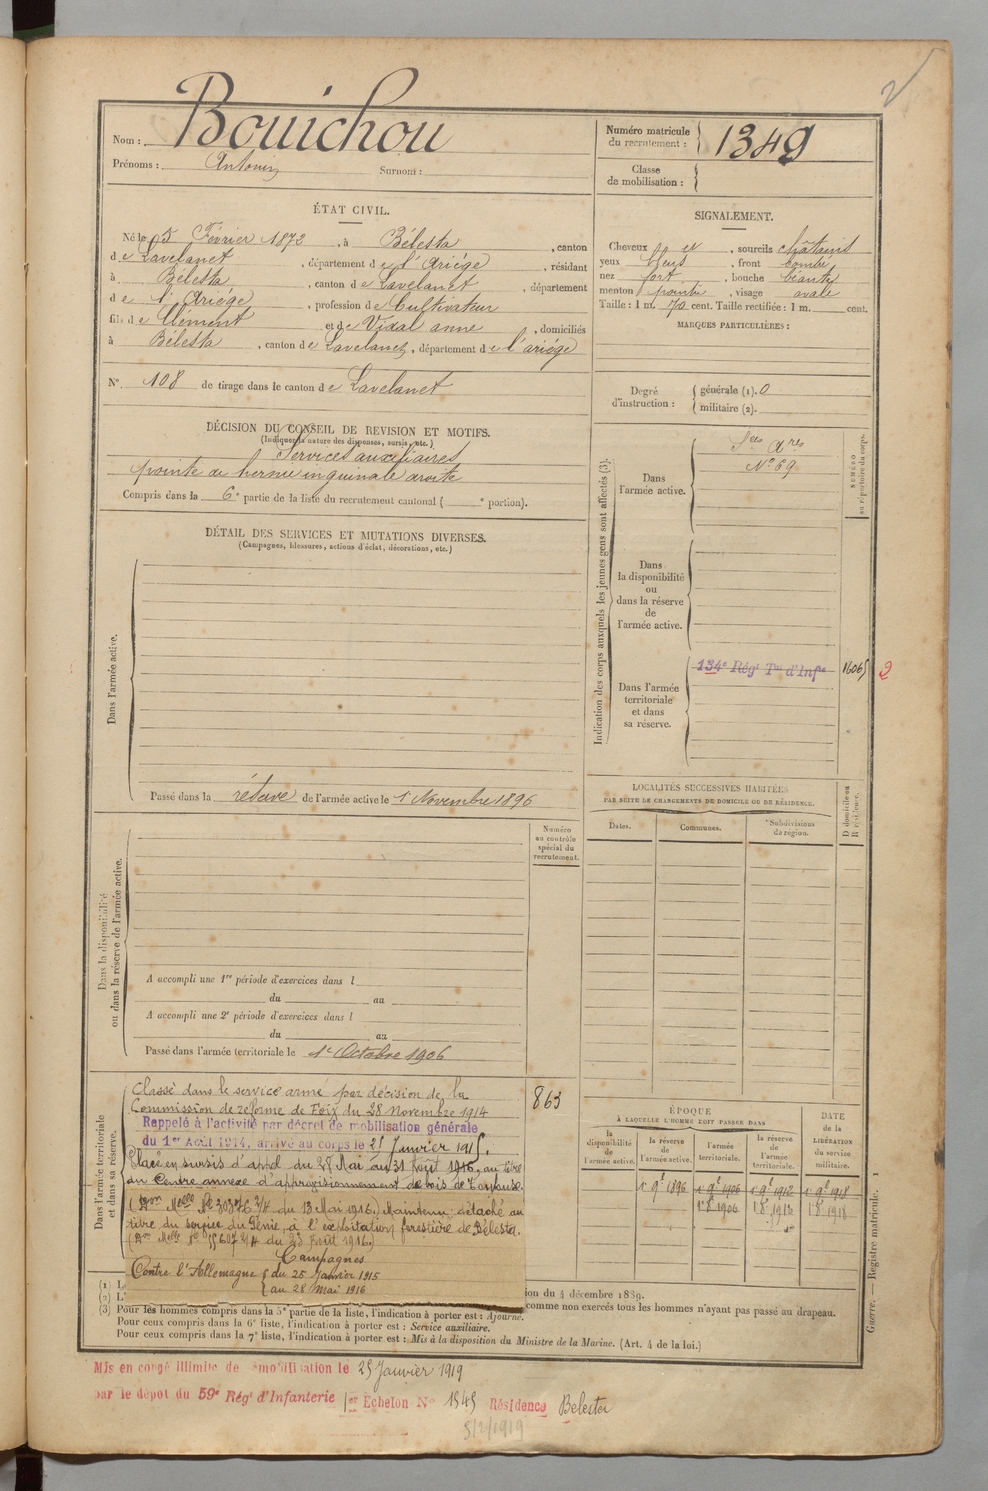 2
Nom : Bouichou
Prénoms : Antonin Surnom :
Numéro matricule du recrutement : 1349
Classe de mobilisation :
ÉTAT CIVIL.
Né le 5 Février 1872, à Bélesta, canton
de Lavelanet, département de l'Ariége, résidant
à Bélesta, canton de Lavelanet, département
de l'Ariége, profession de Cultivateur
fils de Clément et de Vidal anne, domiciliés
à Bélesta, canton de Lavelanet, département de l'ariége
N° 108 de tirage dans le canton de Lavelanet
SIGNALEMENT.
Cheveux et, sourcils châtains
yeux bleus, front
nez fort, bouche
menton pointu, visage ovale
Taille : 1 m. 70 cent. Taille rectifiée : 1 m. cent.
MARQUES PARTICULIÈRES :
Degré d'instruction : générale (1). 0
militaire (2).
DÉCISION DU CONSEIL DE REVISION ET MOTIFS.
(Indiquer la nature des dispenses, sursis, etc.)
Services auxiliaires
pointe de hernie inguinale droite
Compris dans la 6e partie de la liste du recrutement cantonal ( e portion).
DÉTAIL DES SERVICES ET MUTATIONS DIVERSES.
(Campagnes, blessures, actions d'éclat, décorations, etc.)
Dans l'armée active.
Passé dans la réserve de l'armée active le 1 Novembre 1896
Indication des corps auxquels les jeunes gens sont affectés (3).
NUMÉRO au répertoire du corps.
Dans l'armée active.
Sces Ares
N° 69
Dans la disponibilité ou dans la réserve de l'armée active.
Dans l'armée territoriale et dans sa réserve.
134e Régt Tal d'Infie
2
LOCALITÉS SUCCESSIVES HABITÉES
PAR SUITE DE CHANGEMENTS DE DOMICILE OU DE RÉSIDENCE.
Dates. Communes. Subdivisions de région. D domicile ou R résidence.
Numéro au contrôle spécial du recrutement.
Dans la disponibilité ou dans la réserve de l'armée active.
A accompli une 1re période d'exercices dans l
du au
A accompli une 2e période d'exercices dans l
du au
Passé dans l'armée territoriale le 1er Octobre 1906
Dans l'armée territoriale et dans sa réserve.
863
Classé dans le service armé par décision de la
Commission de réforme de Foix du 28 Novembre 1914
Rappelé à l'activité par décret de mobilisation générale
du 1er Août 1914, arrivé au corps le 25 Janvier 1915.
Placé en sursis d'appel du 28 Mai au 31 Août 1916, au titre
du Centre annexe d'approvisionnement de bois de Toulouse.
du 13 Mai 1916.) Maintenu détaché au
titre du service du Génie, à l'exploitation forestière de Bélesta.
du 23 Août 1916.)
Campagnes
Contre l'Allemagne du 25 Janvier 1915
au 28 Mai 1916
ÉPOQUE
À LAQUELLE L'HOMME DOIT PASSER DANS
DATE DE LA LIBÉRATION du service militaire.
la disponibilité de l'armée active. la réserve de l'armée active. l'armée territoriale. la réserve de l'armée territoriale.
1 9e 1896 1 9e 1906 1 9e 1912 1 9e 1918
1 8 1906 1 8 1912 1 8 1918
(1) L
(2) L
ion du 4 décembre 1889.
(3) Pour les hommes compris dans la 5e partie de la liste, l'indication à porter est : Ajourné. comme non exercés tous les hommes n'ayant pas passé au drapeau.
Pour ceux compris dans la 6e liste, l'indication à porter est : Service auxiliaire.
Pour ceux compris dans la 7e liste, l'indication à porter est : Mis à la disposition du Ministre de la Marine. (Art. 4 de la loi.)
Guerre. — Registre matricule. 1
Mis en congé illimité de démobilisation le 25 Janvier 1919
par le dépot du 59e Régt d'Infanterie 1er Echelon N° 1545 Résidence Belesta
5/2/1919